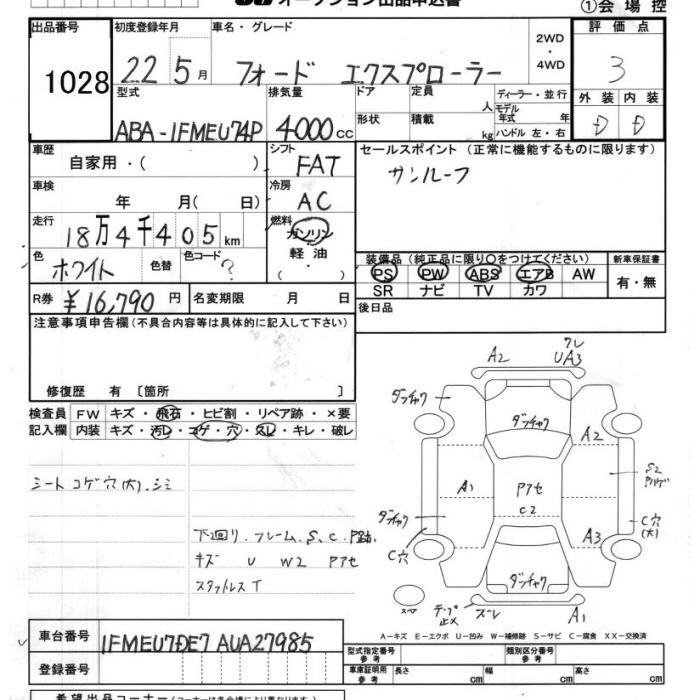 オークション出品申込書
①会場控
出品番号 初度登録年月 車名・グレード 2WD・4WD 評価点
1028 22 5月 フォード エクスプローラー 3
型式 排気量 ドア 定員 人 ディーラー・並行 外装 内装
ABA-1FMEU74P 4000cc 形状 積載 kg モデル年式 年 ハンドル 左・右 D D
車歴 自家用・( ) シフト FAT セールスポイント (正常に機能するものに限ります)
車検 年 月( 日) 冷房 AC サンルーフ
走行 18万4千405km 燃料 ガソリン 軽油
色 ホワイト 色替 色コード ?
装備品(純正品に限り○をつけてください) 新車保証書
PS PW ABS エアB AW 有・無
SR ナビ TV カワ
R券 ¥16,790円 名変期限 月 日 後日品
注意事項申告欄(不具合内容等は具体的に記入して下さい)
修復歴 有 〔箇所 〕
検査員 FW キズ・飛石・ヒビ割・リペア跡・×要
記入欄 内装 キズ・汚レ・コゲ・穴・スレ・キレ・破レ
シート コゲ穴(大).シミ
下回り.フレーム.S.C.P跡.
キズ U W2 Pアセ
スタットレスT
A2 クレ UA3
ダッチャク ダッチャク A2
A1 Pアセ C2 S2 Pハゲ
ダッチャク C穴 A3 C穴(大)
ダッチャク
スマ テープ止メ ズレ A1
A-キズ E-エクボ U-凹み W-補修跡 S-サビ C-腐食 XX-交換済
車台番号 1FMEU7DE7 AUA27985
登録番号
型式指定番号 参考 類別区分番号 参考
車庫証明用 参考 長さ cm 幅 cm 高さ cm
希望出品コーナー(コーナーは各会場により異なります)